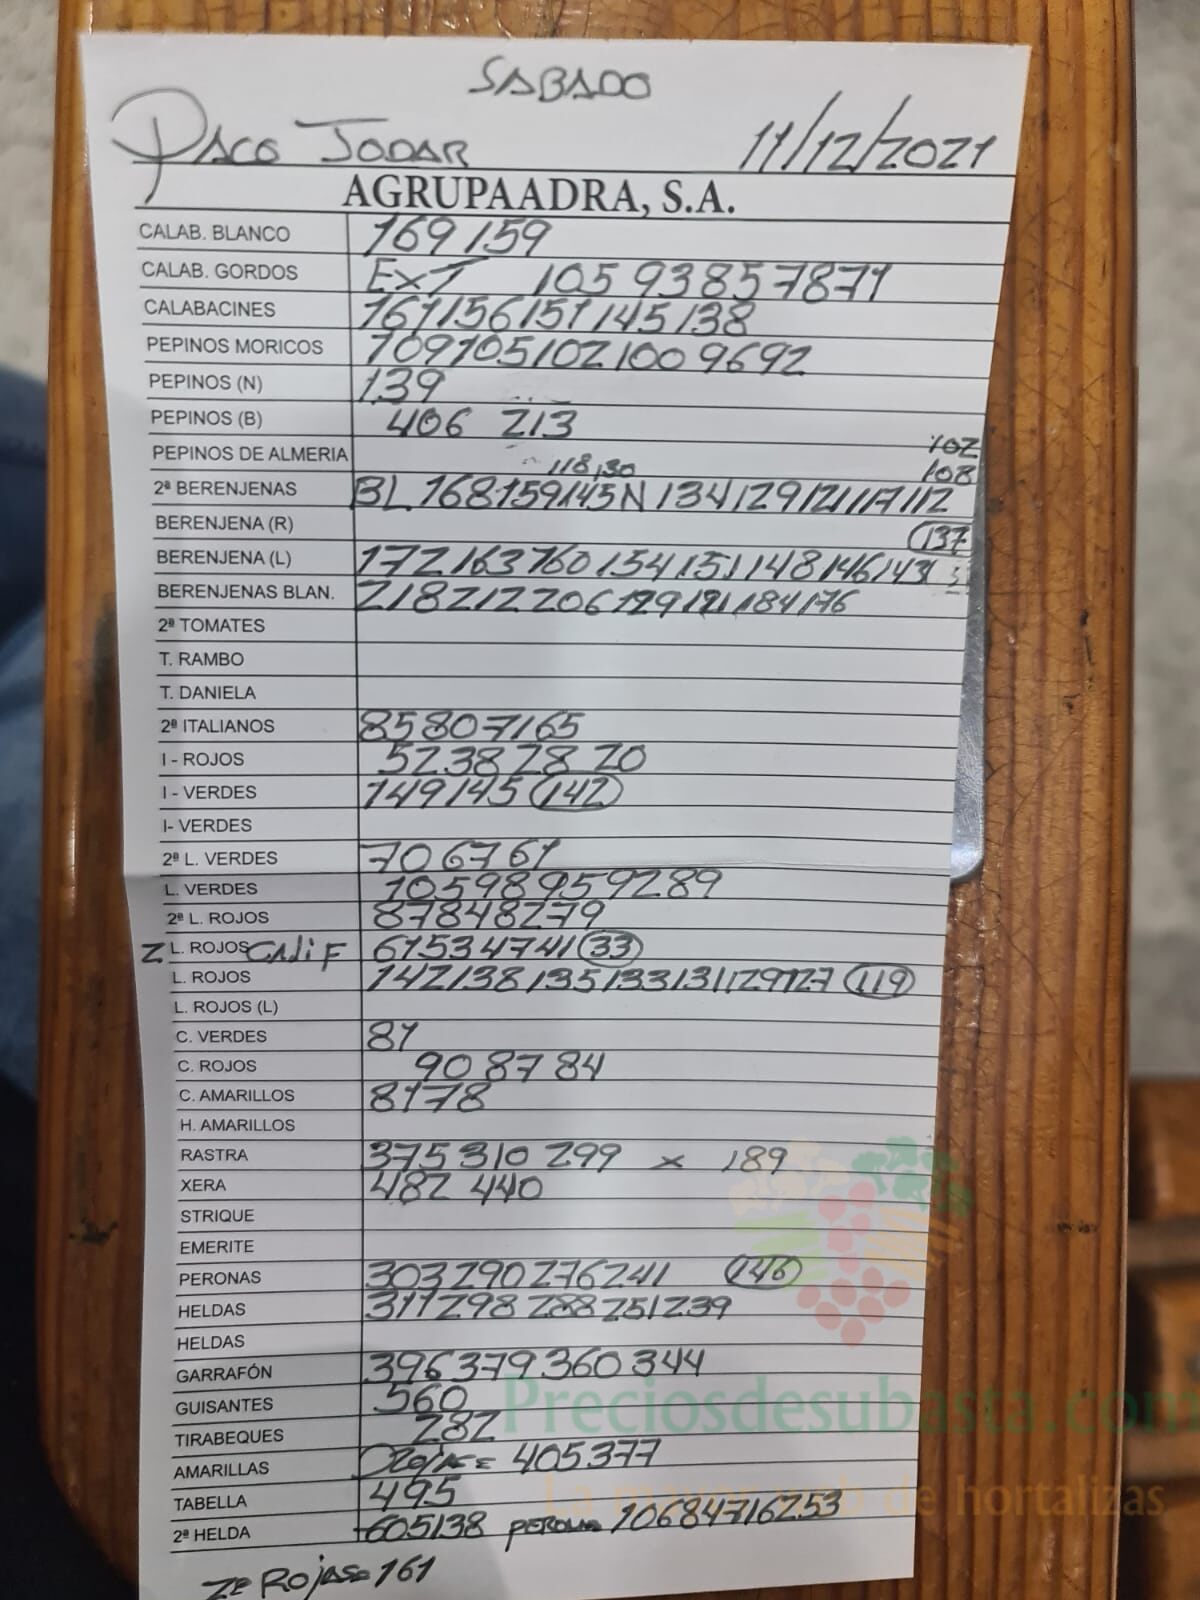 SABADO
PACO JODAR 11/12/2021
AGRUPAADRA, S.A.
CALAB. BLANCO 169 159
CALAB. GORDOS EXT 105 93 85 78 71
CALABACINES 161 156 151 145 138
PEPINOS MORICOS 109 105 102 100 96 92
PEPINOS (N) 139
PEPINOS (B) 406 213
102
PEPINOS DE ALMERIA 118,30 108
2ª BERENJENAS BL 168 159 145 N 134 129 121 117 112
BERENJENA (R) 137
BERENJENA (L) 172 163 160 154 151 148 146 143
BERENJENAS BLAN. 218 212 206 199 191 184 176
2ª TOMATES
T. RAMBO
T. DANIELA
2ª ITALIANOS 85 80 71 65
I - ROJOS 52 38 28 20
I - VERDES 149 145 142
I- VERDES
2ª L. VERDES 70 67 61
L. VERDES 105 98 95 92 89
2ª L. ROJOS 87 84 82 79
2 L. ROJOS CALIF 61 53 47 41 33
L. ROJOS 142 138 135 133 131 129 127 119
L. ROJOS (L)
C. VERDES 81
C. ROJOS 90 87 84
C. AMARILLOS 81 78
H. AMARILLOS
RASTRA 375 310 299 x 189
XERA 482 440
STRIQUE
EMERITE
PERONAS 303 290 276 241 146
HELDAS 311 298 288 251 239
HELDAS
GARRAFÓN 396 379 360 344
GUISANTES 560
TIRABEQUES 282
AMARILLAS Rojas = 405 377
TABELLA 495
2ª HELDA 605138 PERONA 106 84 71 62 53
2ª Rojas = 161
Preciosdesubasta.com
La mayor web de hortalizas